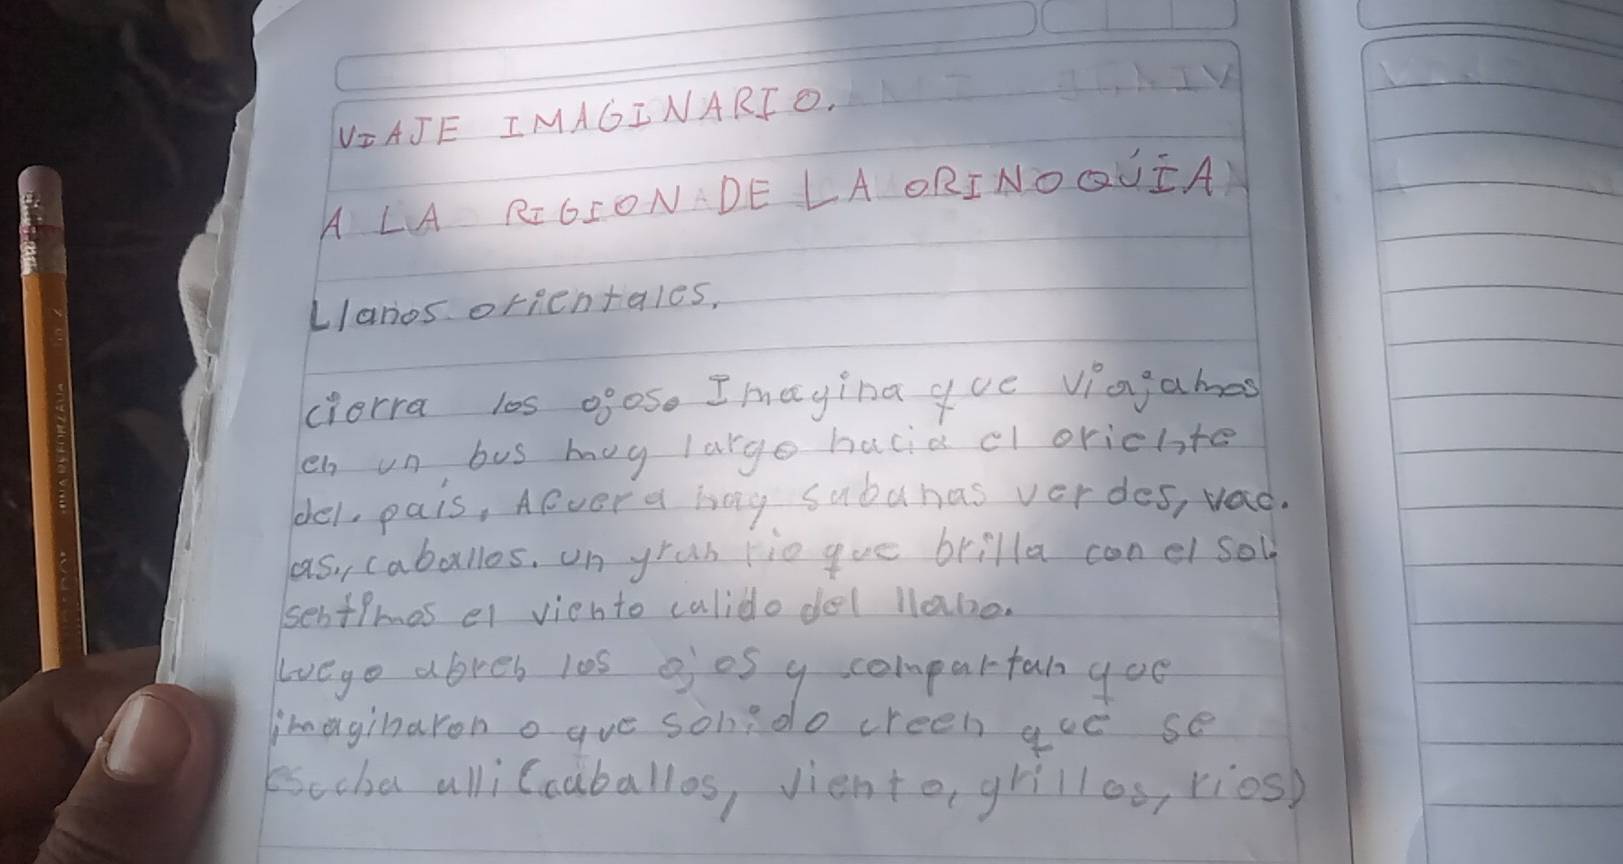 VIAJE IMAGINARIO.
A LA REGION DE LA ORINOQUÍA
Llanos orientales.
cierra los ojos. Imagina que viajamos
en un bus muy largo hacia el oriente
del. país, Afuera hay sabanas verdes, vac.
as., caballos. un gran rio que brilla con el sol
sentimos el viento calido del llano.
Luego abren los ojos y compartan que
imaginaron o que sonido creen que se
esccha alli (caballos, viento, grillos, rios)